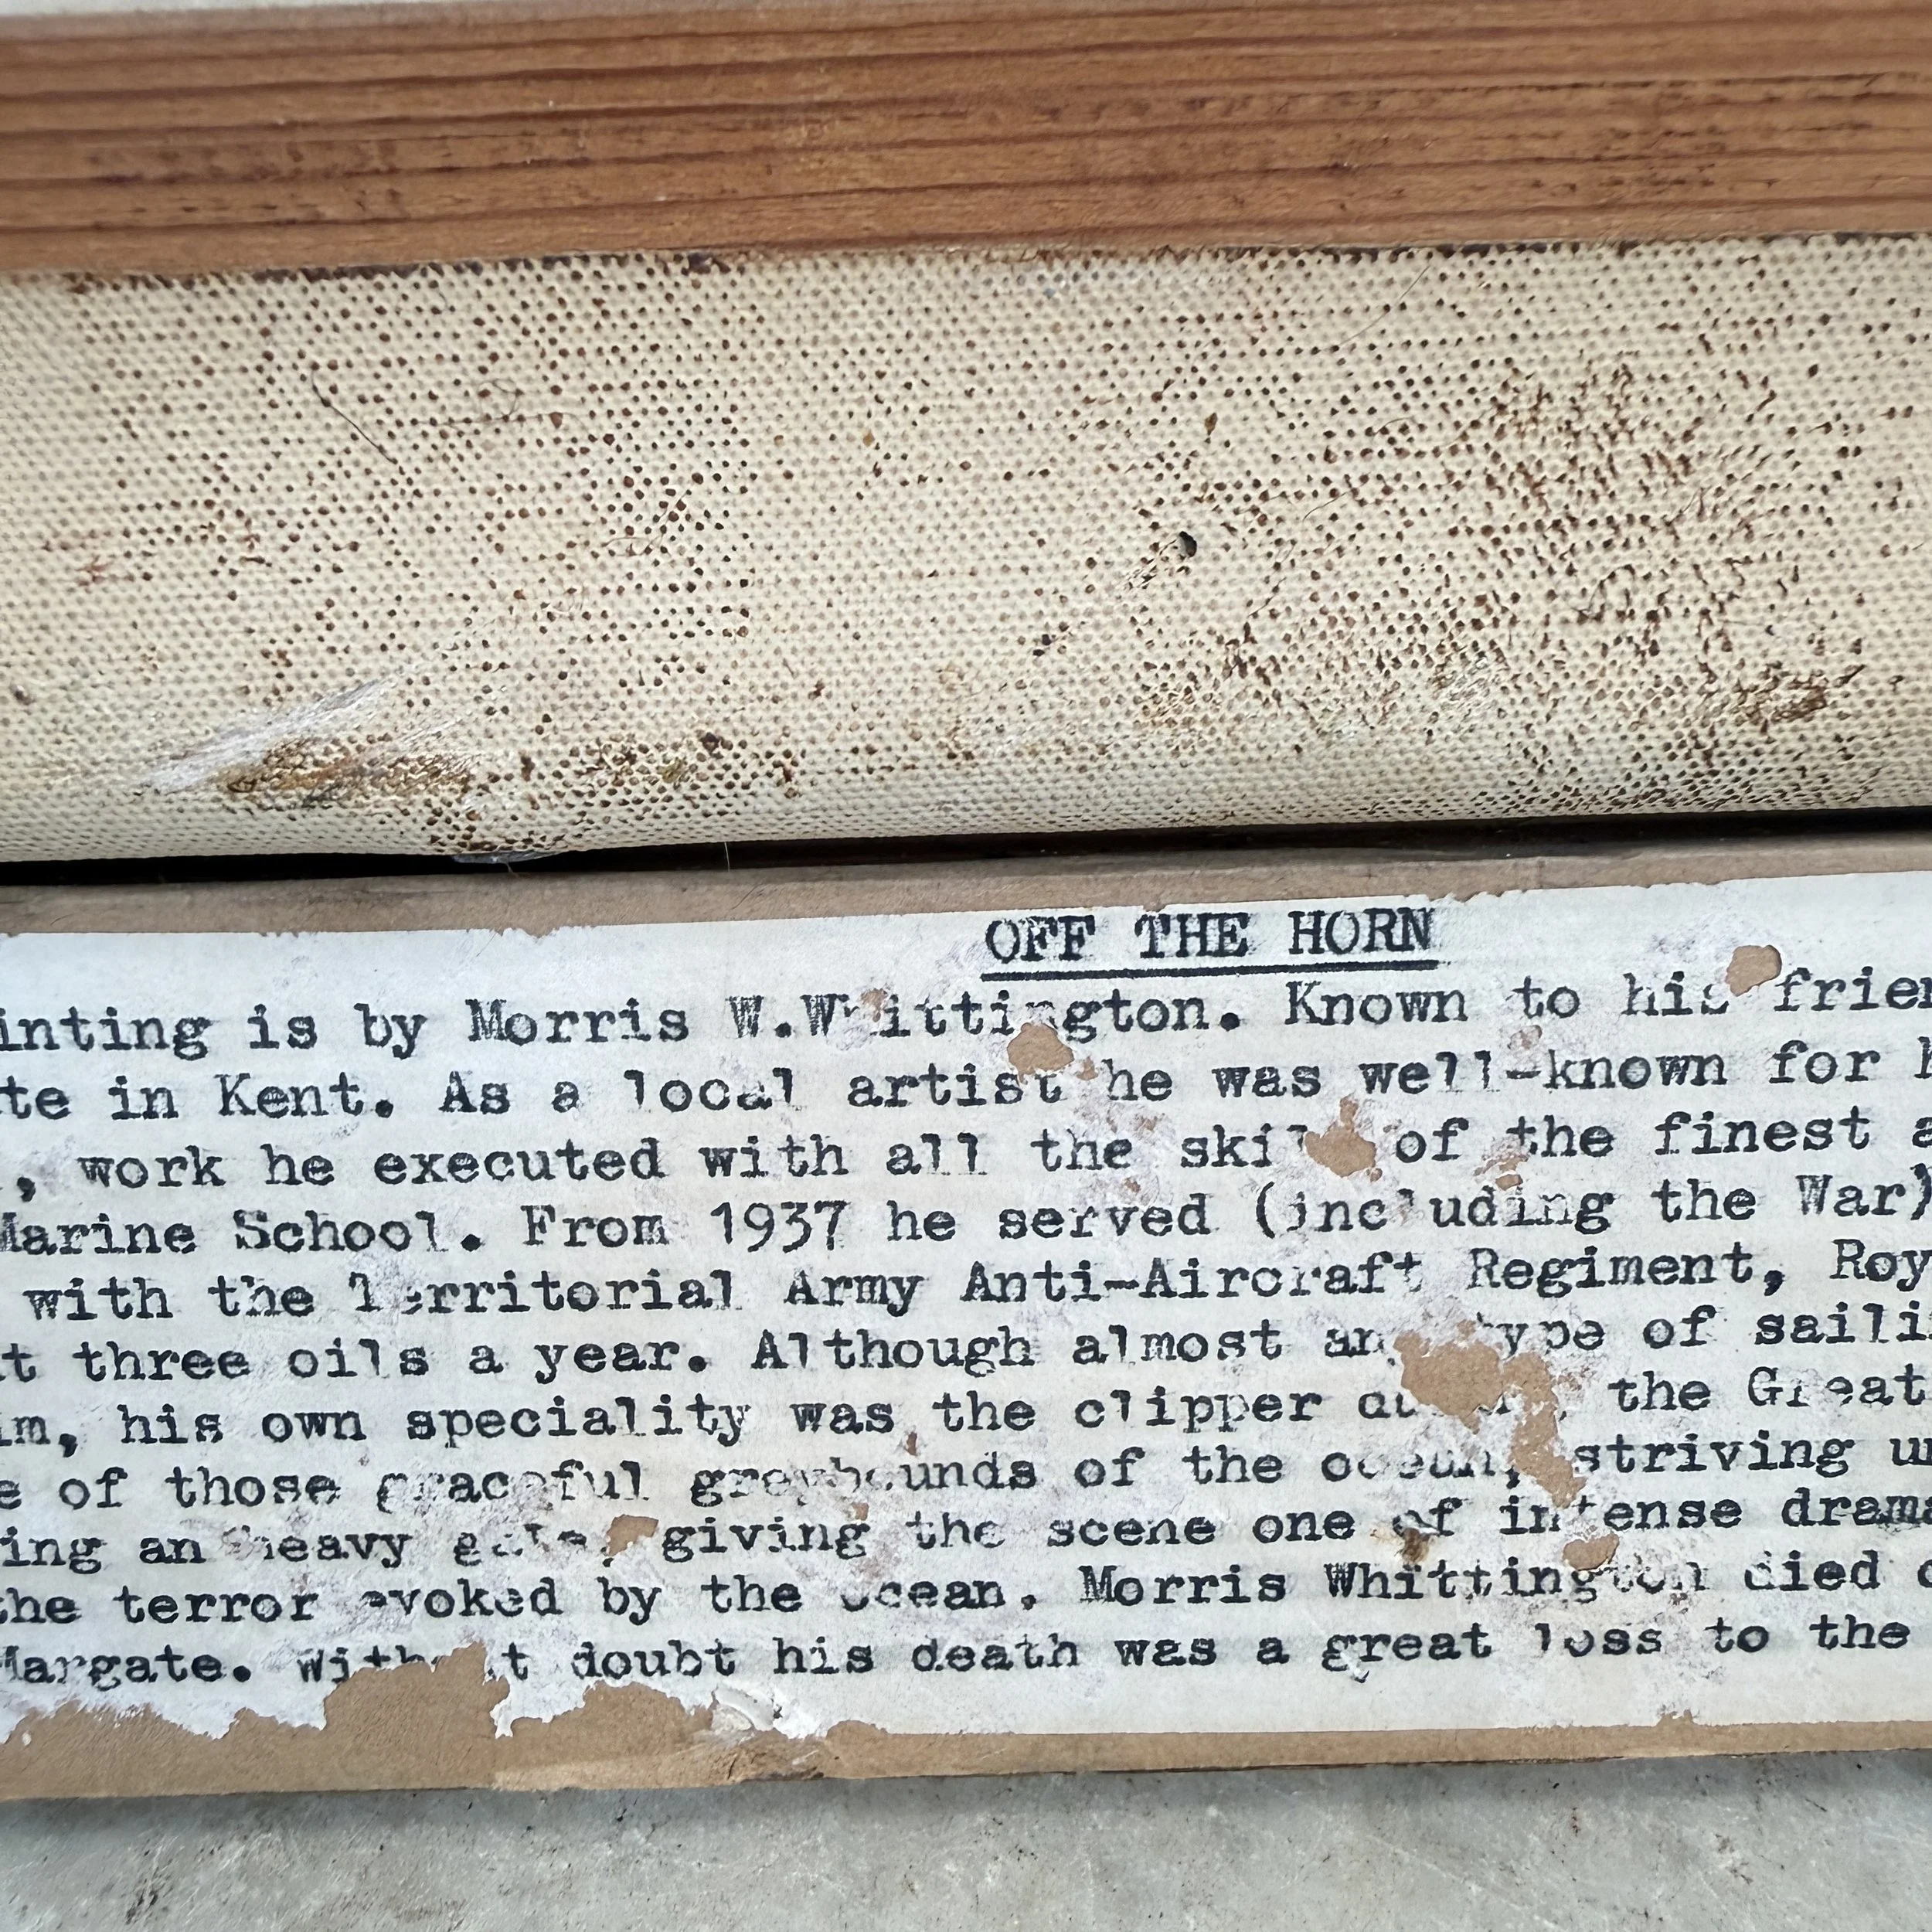 OFF THE HORN
inting is by Morris W.Whittington. Known to his frien
te in Kent. As a local artist he was well-known for h
, work he executed with all the skill of the finest a
Marine School. From 1937 he served (including the War)
with the Territorial Army Anti-Aircraft Regiment, Roy
t three oils a year. Although almost any type of saili
im, his own speciality was the clipper the Great
e of those graceful greyhounds of the ocean, striving un
ing an heavy gale, giving the scene one of intense drama
the terror evoked by the ocean. Morris Whittington died o
Margate. Without doubt his death was a great loss to the